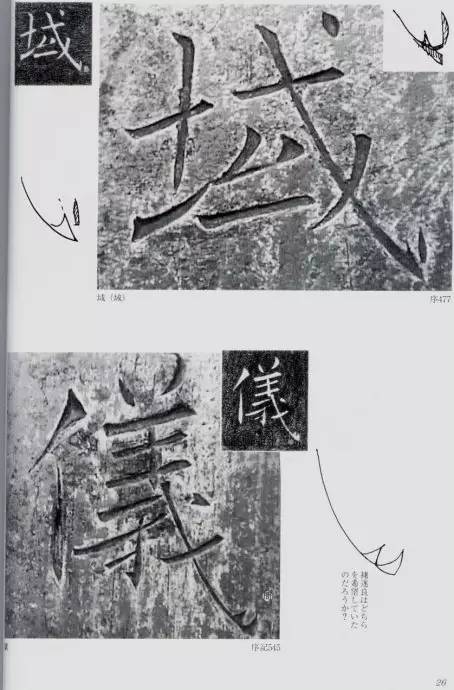 域
域
域（域）
序477
儀
儀
序記545
褚遂良はどちら
を希望していた
のだろうか？
26